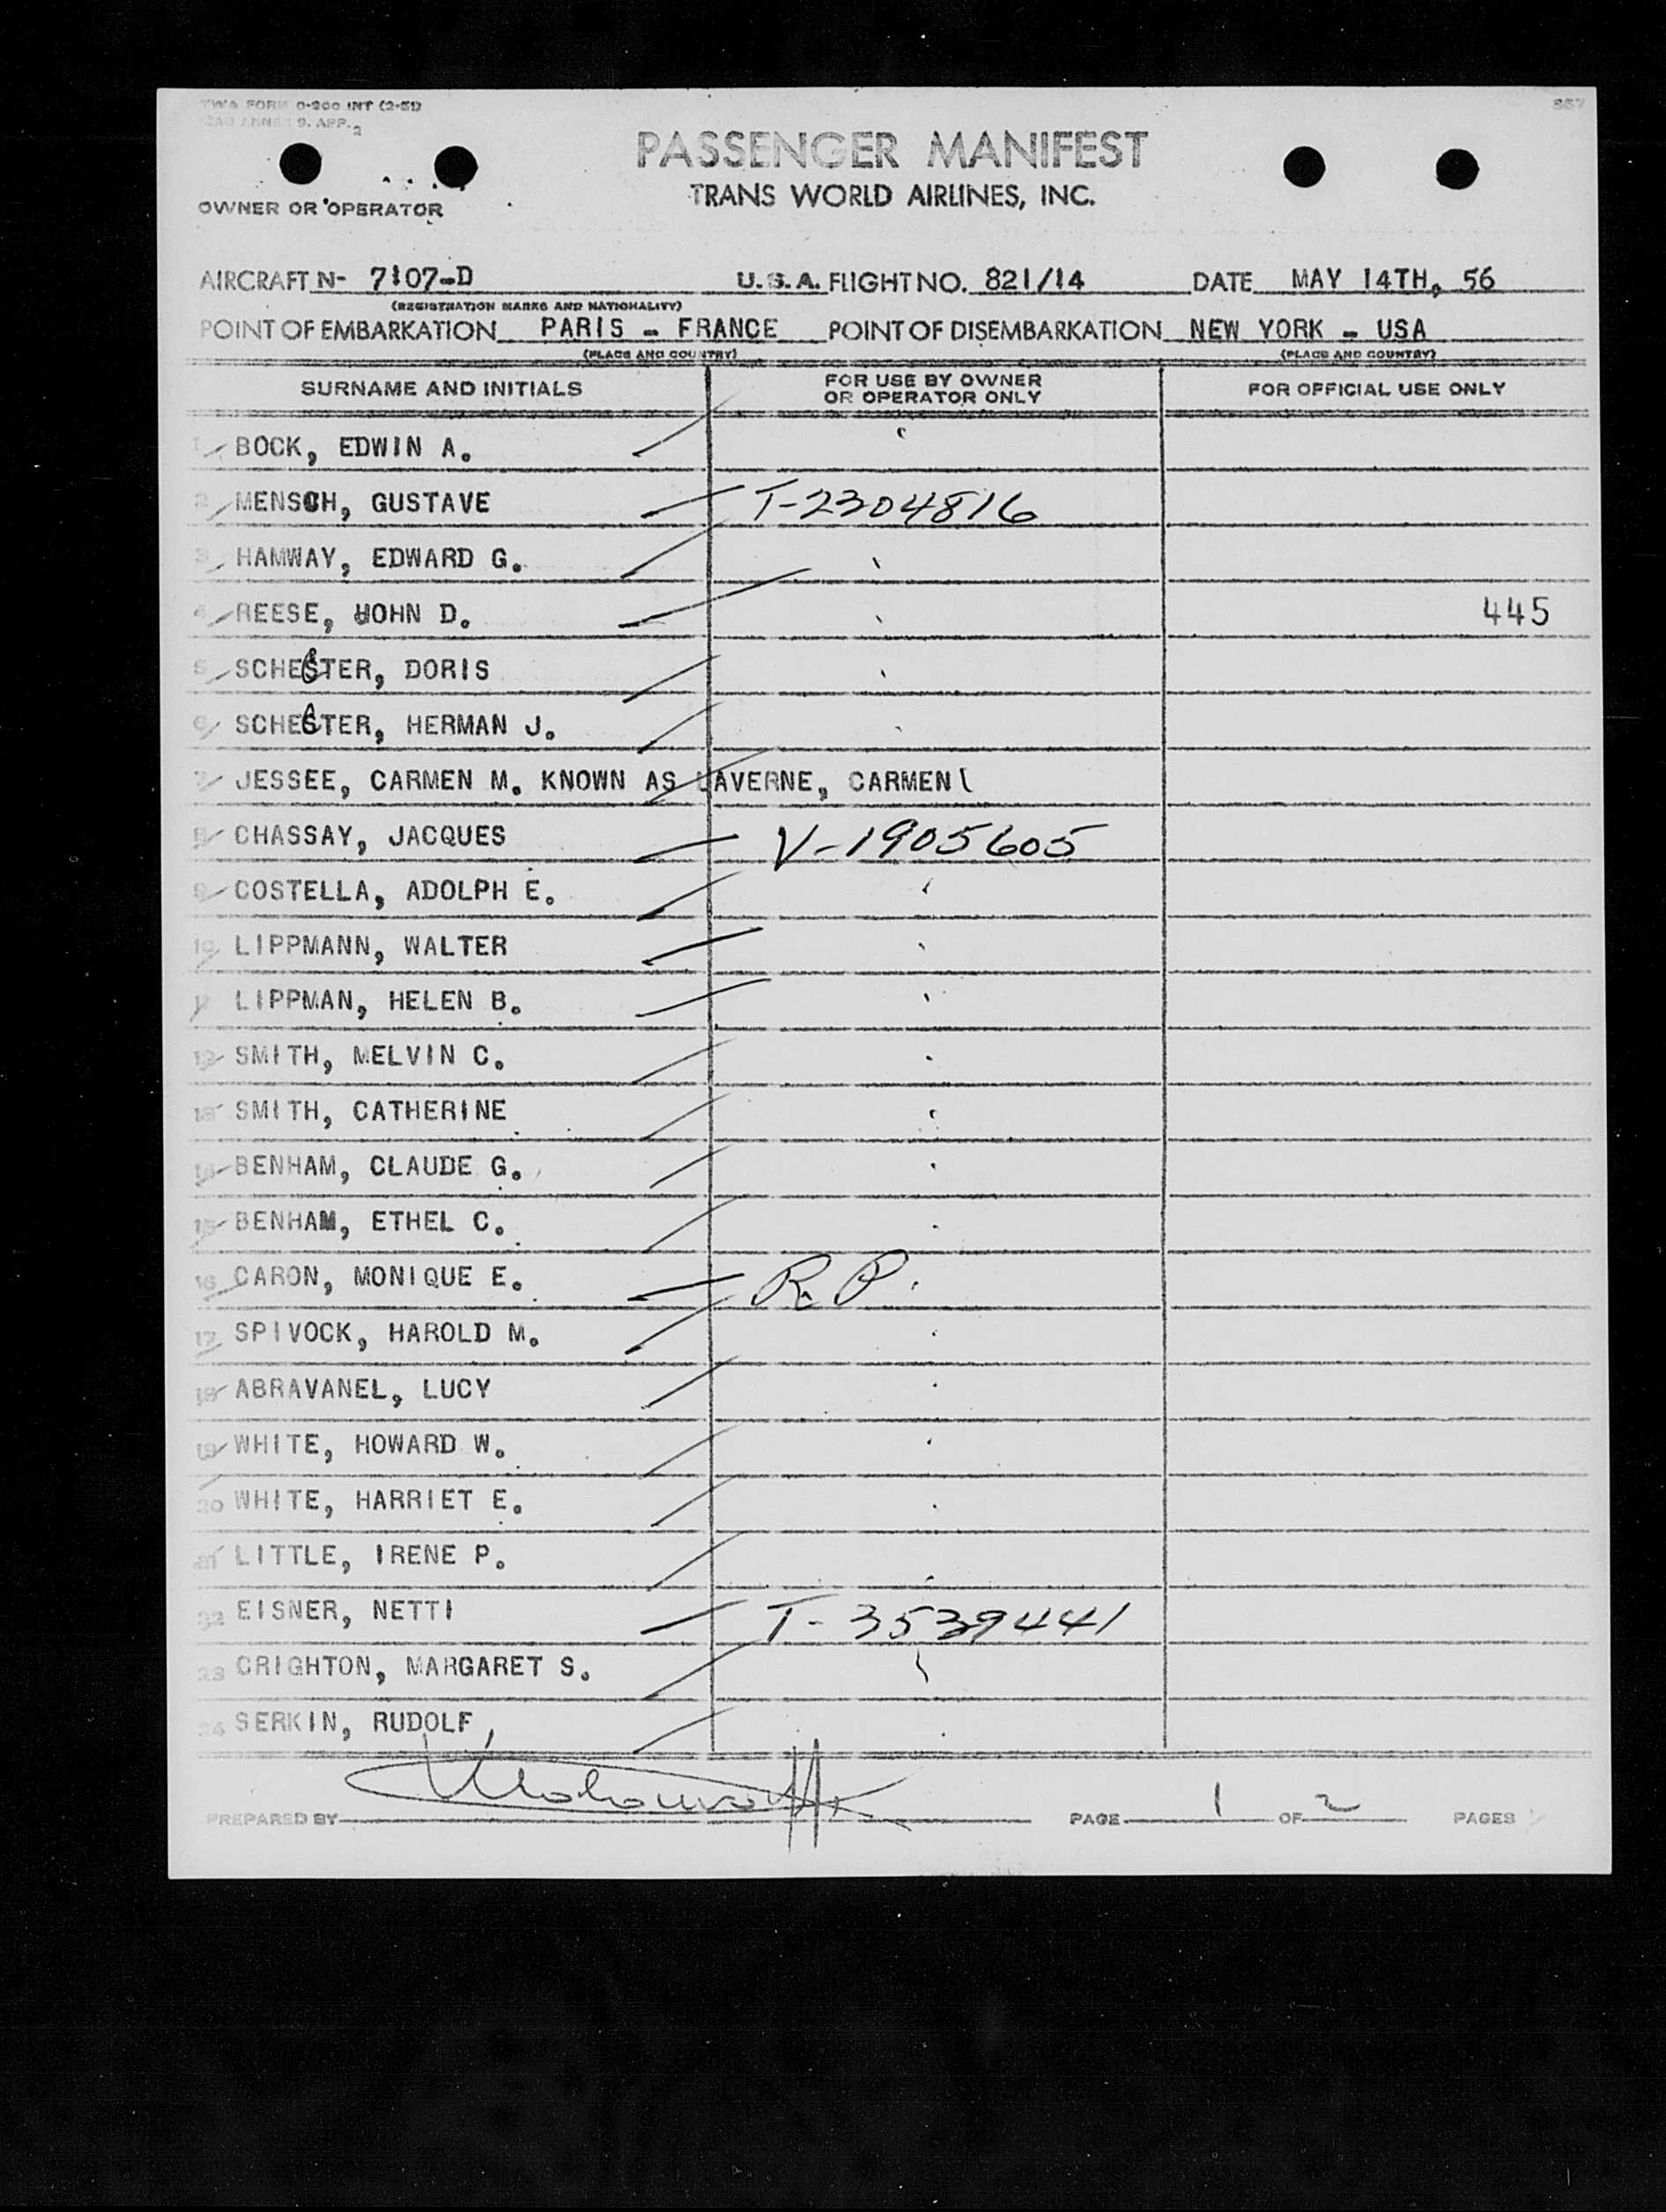 TWA FORM 0-200 INT (2-51)
ICAO ANNEX 9. APP. 2
PASSENGER MANIFEST
TRANS WORLD AIRLINES, INC.
OWNER OR OPERATOR
AIRCRAFT N- 7107-D U.S.A. FLIGHT NO. 821/14 DATE MAY 14TH, 56
(REGISTRATION MARKS AND NATIONALITY)
POINT OF EMBARKATION PARIS - FRANCE POINT OF DISEMBARKATION NEW YORK - USA
(PLACE AND COUNTRY) (PLACE AND COUNTRY)
SURNAME AND INITIALS FOR USE BY OWNER OR OPERATOR ONLY FOR OFFICIAL USE ONLY
1 BOCK, EDWIN A.
2 MENSCH, GUSTAVE T-2304816
3 HAMWAY, EDWARD G.
4 REESE, JOHN D. 445
5 SCHECTER, DORIS
6 SCHECTER, HERMAN J.
7 JESSEE, CARMEN M. KNOWN AS LAVERNE, CARMEN
8 CHASSAY, JACQUES V-1905605
9 COSTELLA, ADOLPH E.
10 LIPPMANN, WALTER
11 LIPPMAN, HELEN B.
12 SMITH, MELVIN C.
13 SMITH, CATHERINE
14 BENHAM, CLAUDE G.
15 BENHAM, ETHEL C.
16 CARON, MONIQUE E. R.P.
17 SPIVOCK, HAROLD M.
18 ABRAVANEL, LUCY
19 WHITE, HOWARD W.
20 WHITE, HARRIET E.
21 LITTLE, IRENE P.
22 EISNER, NETTI T-3539441
23 CRIGHTON, MARGARET S.
24 SERKIN, RUDOLF
PREPARED BY PAGE 1 OF 2 PAGES